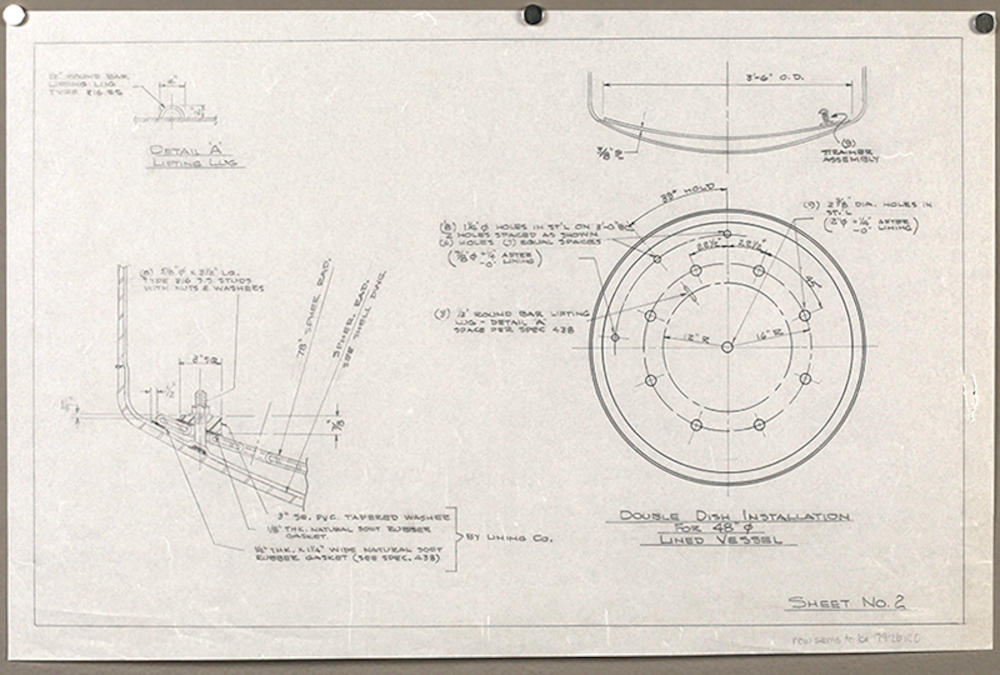 ROUND BAR
LIFTING LUG
TYPE 316 SS
DETAIL 'A'
LIFTING LUG
3'-6" O.D.
3/8" R
(9)
STRAINER
ASSEMBLY
39° HOLD
(8) 1 1/4" Ø HOLES IN ST'L ON 3'-0" BC
2 HOLES SPACED AS SHOWN
(6) HOLES (7) EQUAL SPACES
AFTER
-0" LINING
(9) 2 3/8" DIA. HOLES IN
ST'L
(2" Ø +1/4" AFTER
-0" LINING)
22 1/2° 22 1/2°
45°
(3) 1/2" ROUND BAR LIFTING
LUG - DETAIL 'A'
SPACE PER SPEC 438
12" R
16" R
(8) 5/8" Ø x 2 1/2" LG.
TYPE 316 S.S. STUDS
WITH NUTS & WASHERS
78" SPHER RAD.
SPHER. RAD.
SEE SHELL DWG
2" SQ
1/2"
7/8"
3" SQ. PVC. TAPERED WASHER
1/8" THK. NATURAL SOFT RUBBER
GASKET.
THK. x 1 1/4" WIDE NATURAL SOFT
RUBBER GASKET (SEE SPEC. 438)
BY LINING CO.
DOUBLE DISH INSTALLATION
FOR 48" Ø
LINED VESSEL
SHEET NO. 2
now seems to be